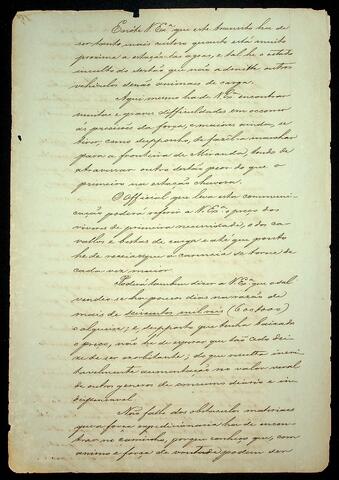 Creio V. Exª que este transito ha de
ser tanto mais arduo quanto está muito
proxima a estação das agoas, e tal he o estado
inculto do sertão que não admitte outro
vehiculo senão animaes de carga.
Aqui mesmo ha de V. Exª encontrar
muitas e graves difficuldades em occorrer
ás precisões da força; e maiores ainda, se
tiver, como supponho, de fazêl-a marchar
para a fronteira de Miranda, tendo de
atravessar outro sertão peor do que o
primeiro na estação chuvosa.
O Official que leva esta communi-
cação poderá referir a V. Exª o preço dos
viveres de primeira necessidade, e dos ca-
vallos e bestas de carga e até que ponto
he de receiar que a carencia se torne de
cada vez maior.
Poderá tambem dizer a V. Exª que o sal
vendeo-se ha poucos dias na razão de
mais de seiscentos mil reis (600$000)
o alqueire; e, supposto que tenha baixado
o preço, não he de esperar que tão cedo dei-
xe de ser exorbitante; do que resulta inevi-
tavelmente augmentação no valor real
de outros generos de consumo diario e in-
dispensavel.
Não fallo dos obstaculos materiaes
que a força expedicionaria ha de encon-
trar no caminho, porque conheço que, com
animo e força de vontade podem ser